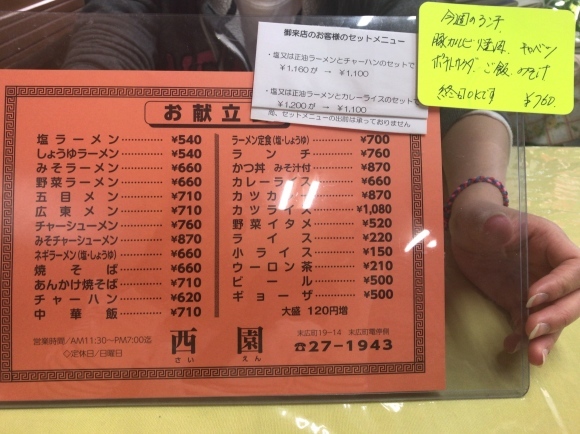 御来店のお客様のセットメニュー
・塩又は正油ラーメンとチャーハンのセットで
¥1,160が → ¥1,100
・塩又は正油ラーメンとカレーライスのセットで
¥1,200が → ¥1,100
尚、セットメニューの出前は承っておりません
今週のランチ
豚カルビ焼肉、キャベツ
ポテトサラダ、ご飯、みそ汁
終日OKです ¥760.
お献立
塩ラーメン ¥540
しょうゆラーメン ¥540
みそラーメン ¥660
野菜ラーメン ¥660
五目メン ¥710
広東メン ¥710
チャーシューメン ¥760
みそチャーシューメン ¥870
ネギラーメン(塩・しょうゆ) ¥660
焼そば ¥660
あんかけ焼そば ¥710
チャーハン ¥620
中華飯 ¥710
ラーメン定食(塩・しょうゆ) ¥700
ランチ ¥760
かつ丼 みそ汁付 ¥870
カレーライス ¥660
カツカレー ¥870
カツライス ¥1,080
野菜イタメ ¥520
ライス ¥220
小ライス ¥150
ウーロン茶 ¥210
ビール ¥500
ギョーザ ¥500
大盛 120円増
営業時間/AM11:30〜PM7:00迄
◇定休日/日曜日
西園
さい えん
末広町19-14 末広町電停側
☎27-1943